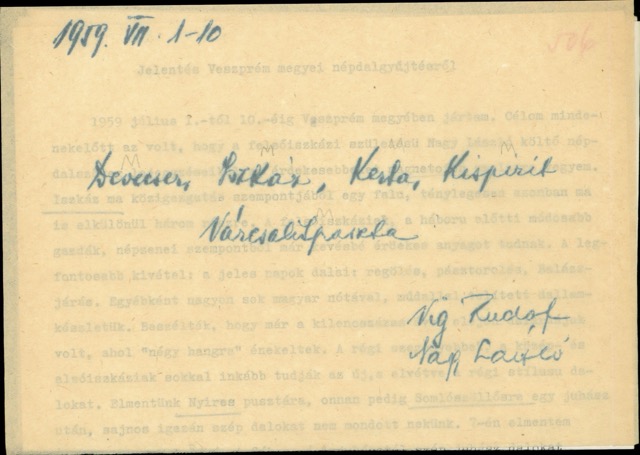 1959. VII. 1-10
506
Jelentés Veszprém megyei népdalgyűjtésről
1959 július 1.-től 10.-éig Veszprém megyében jártam. Célom minde-
nekelőtt az volt, hogy a felsőiszkázi születésű Nagy László költő nép-
Devecser, Iszkáz, Kerta, Kispirit
Iszkáz ma közigazgatás szempontjából egy falu, ténylegesen azonban ma
is elkülönül három
a háború előtti módosabb
Várcsalitpuszta
gazdák, népzenei szempontból már kevésbé érdekes anyagot tudnak. A leg-
fontosabb kivétel: a jeles napok dalai: regölés, pásztorolás, Balázs-
járás. Egyébként nagyon sok magyar nótával, műdallal
készletük. Beszélték, hogy már a
Víg Rudolf
volt, ahol "négy hangra" énekeltek. A régi
Nagy László
alsóiszkáziak sokkal inkább tudják az új, s elvétve a régi stílusu da-
lokat. Elmentünk Nyires pusztára, onnan pedig Somlószőllősre egy juhász
után, sajnos igazán szép dalokat nem mondott nekünk. 7-én elmentem